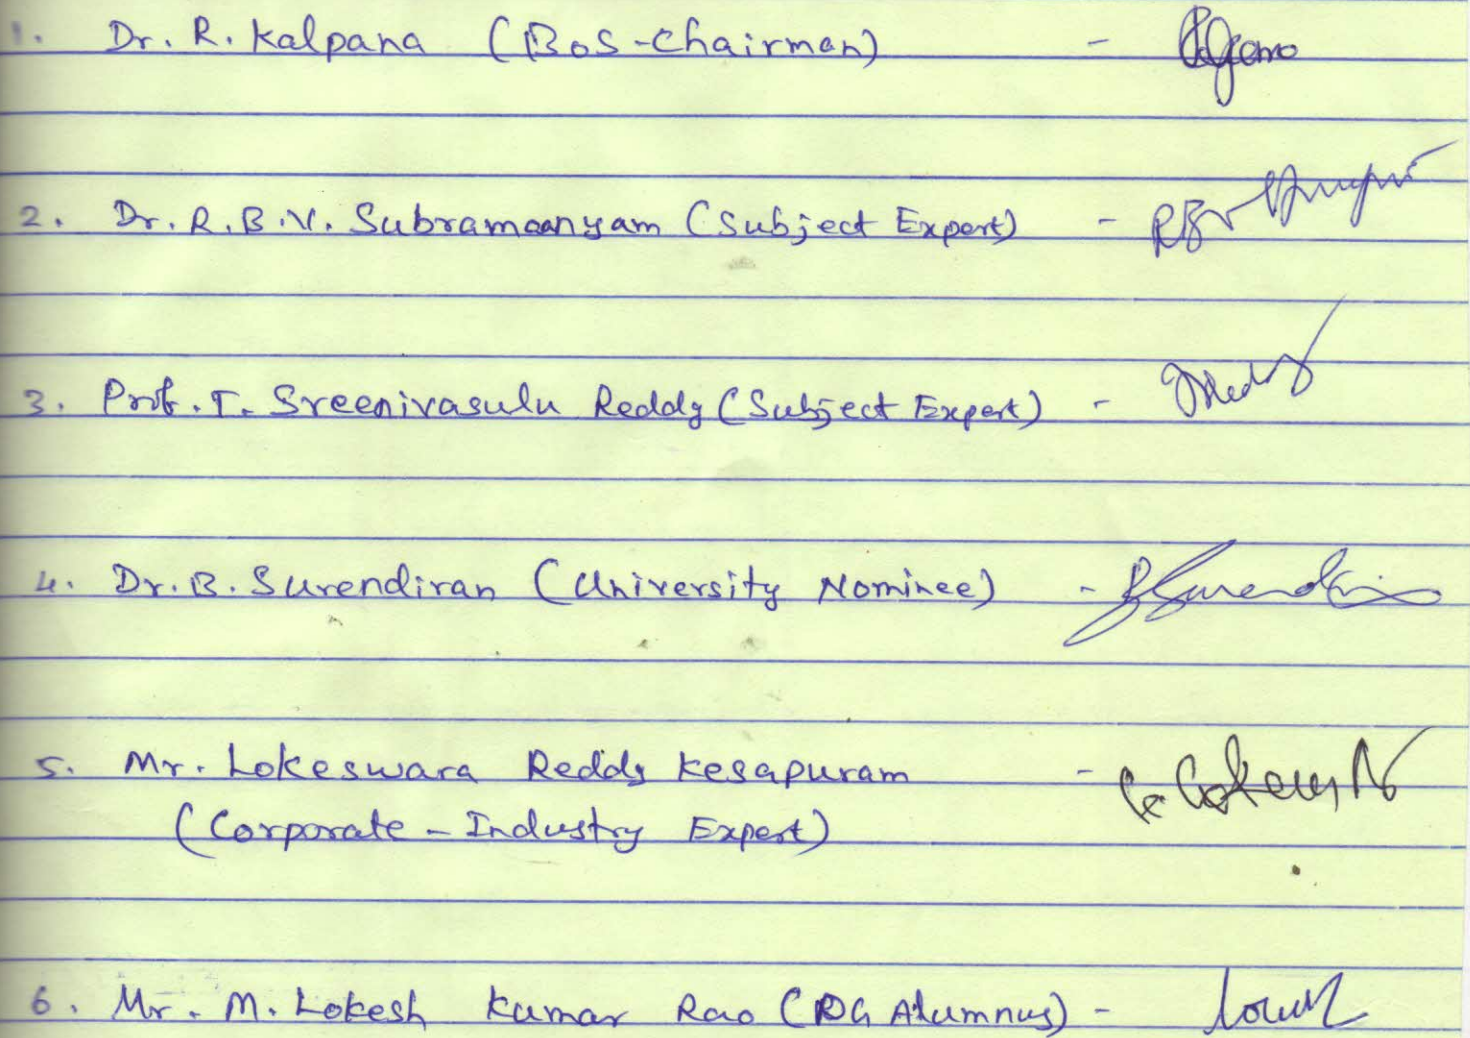 1. Dr. R. Kalpana (BoS-Chairman) -
2. Dr. R.B.V. Subramaanyam (Subject Expert) -
3. Prof. T. Sreenivasulu Reddy (Subject Expert) -
4. Dr. B. Surendiran (University Nominee) - BSurendiran
5. Mr. Lokeswara Reddy Kesapuram -
(Corporate - Industry Expert)
6. Mr. M. Lokesh Kumar Rao (PG Alumnus) -